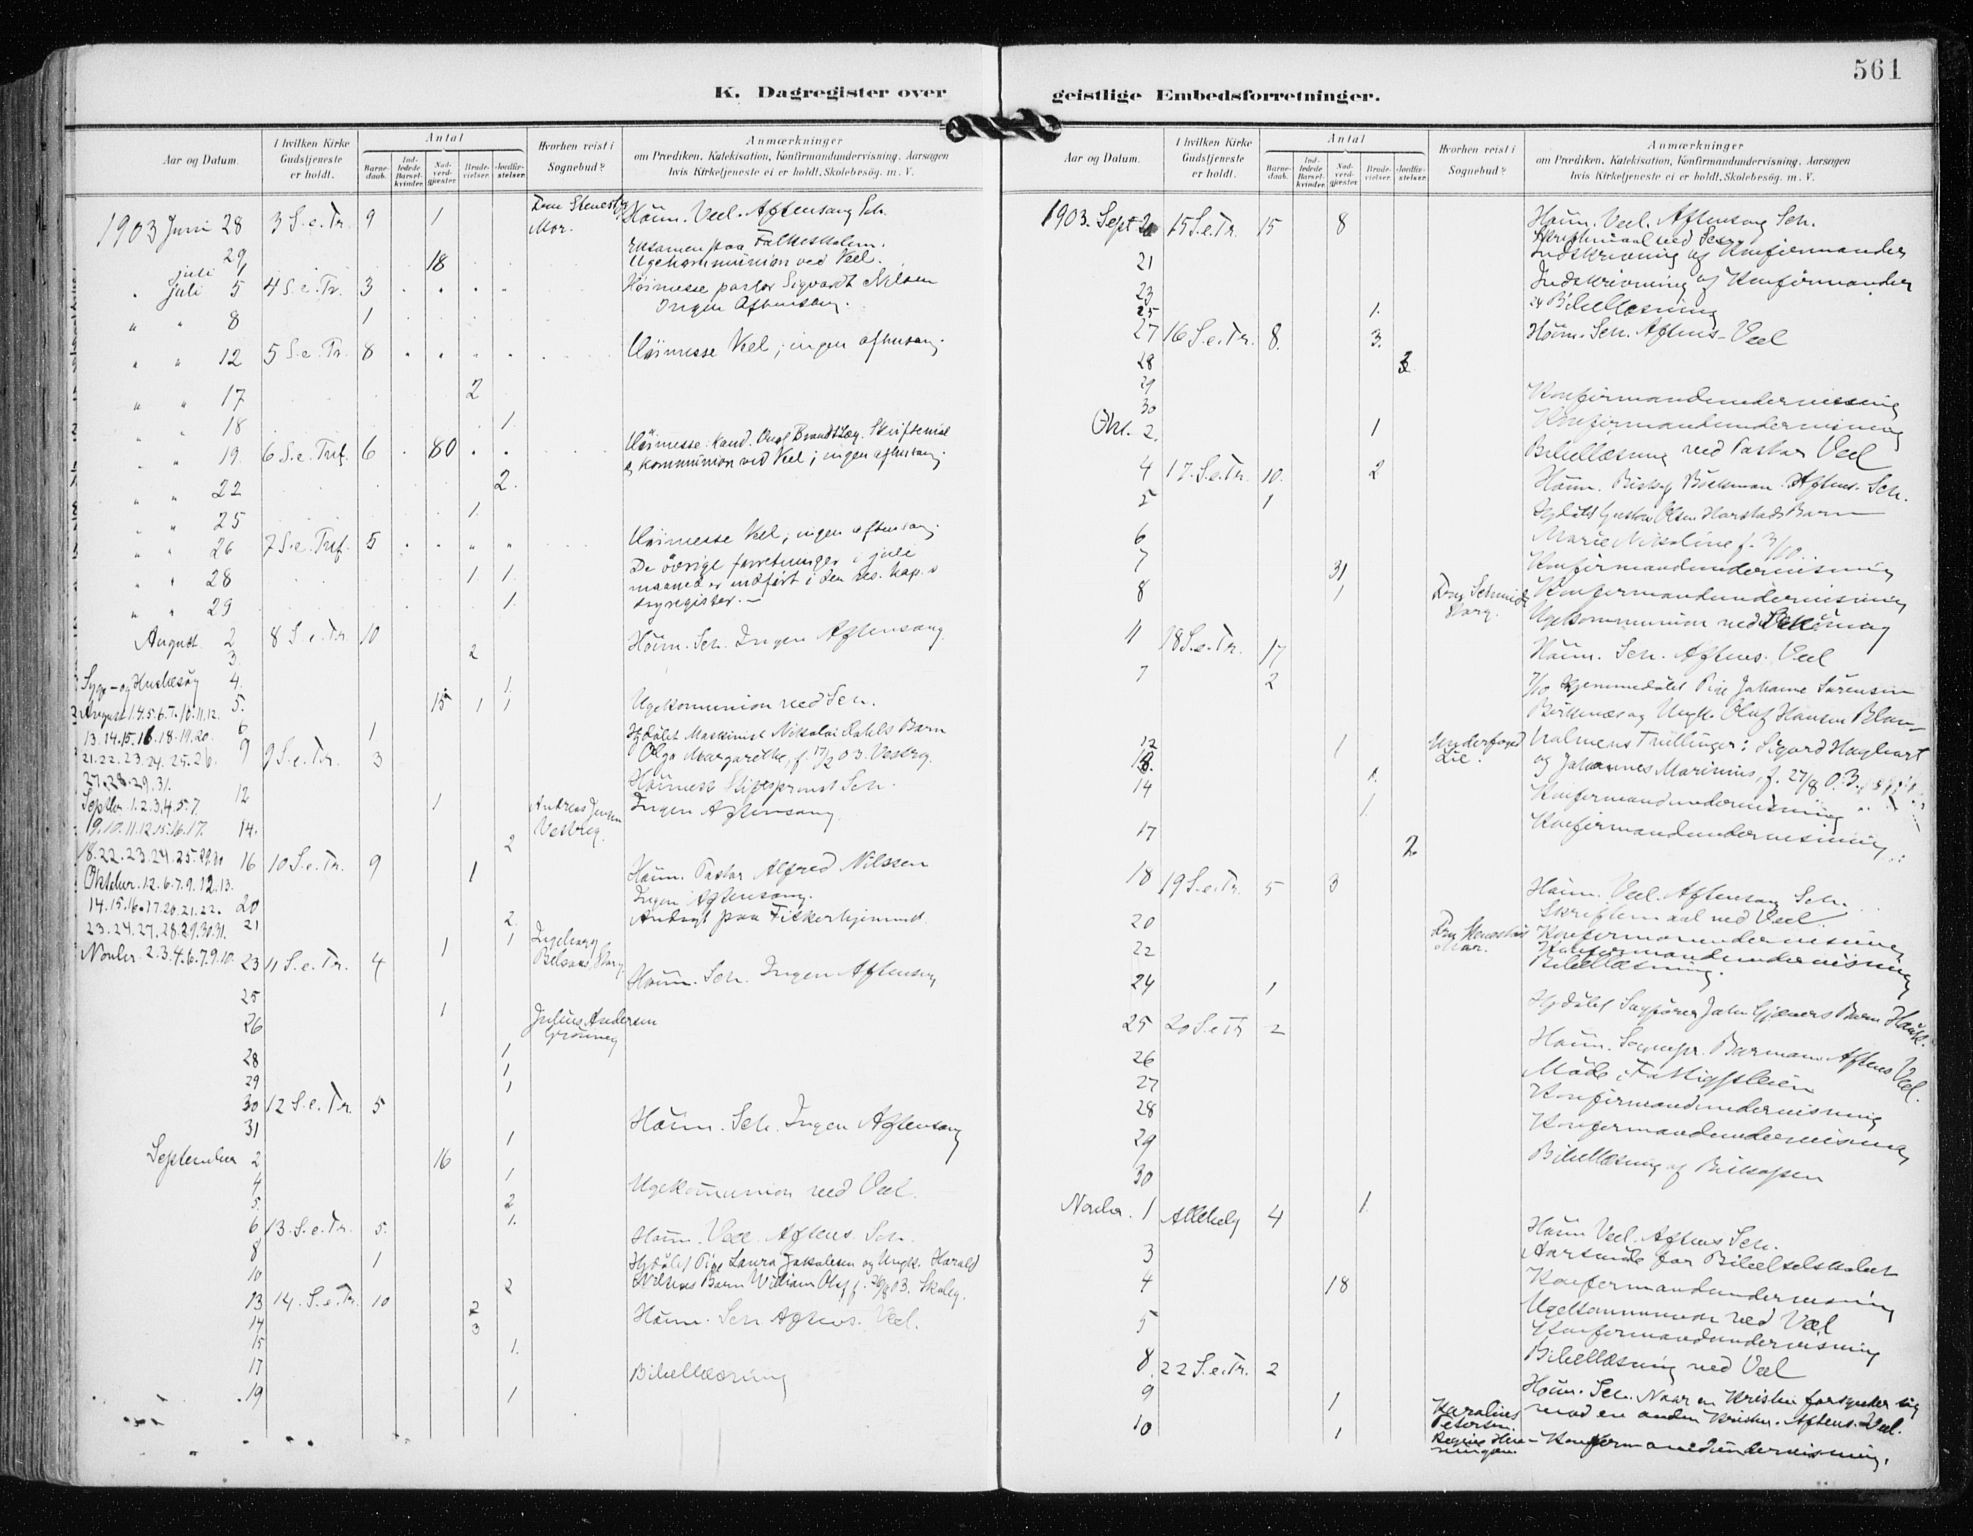 561
K. Dagregister over geistlige Embedsforretninger.
Aar og Datum.
I hvilken Kirke Gudstjeneste er holdt.
Antal
Barnedaab.
Indledede Barselkvinder.
Nadverdgjester.
Brudevielser.
Jordfæstelser.
Hvorhen reist i Sognebud?
Anmærkninger
om Prædiken, Katekisation, Konfirmandundervisning, Aarsagen
hvis Kirketjeneste ei er holdt, Skolebesøg, m. V.
1903 Juni 28 3 S. e. Tr. 9 1 Høim. Veel. Aftensang Sch.
Examen paa Folkeskolen.
29 18 Ugekommunion ved Vel.
juli 1
" juli 5 4 S. e. Tr. 3 Høimesse pastor Sigvardt Nilsen
Ingen Aftensang.
" " 8 1
" " 12 5 S. e. Tr. 8 Høimesse Veel; ingen aftensang.
" " 17 2
" " 18 1.
" " 19. 6 S. e. Trf. 6 80 Høimesse. Kand. Skriftemaal
og kommunion ved Veel; ingen aftensang.
" " 22 2.
" " 25 1
" " 26 7 S. e. Trf. 5 Høimesse Vel; ingen aftensang.
De øvrige forretninger i juli
" " 28 1 1. maaned er indført i den res. kap.s
" " 29 1. dagregister. —
August 2 8 S. e. Tr. 10 Høim. Sch. Ingen Aftensang.
3. 2
Syge- og Husbesøg 4. 1.
August 1.4.5.6.7.10.11.12. 5. 15 1 1 Ugekommunion ved Sch.
13.14.15.16.18.19.20. 6. 1 Hjdøbt Maskinist Nikolai Dahls Barn
21.22.23.24.25.26. 9 9 S. e. Tr. 3 Olga Margarethe, f. 17/2 03. Vestrg.
27.28.29.31. Sch.
Septbr. 1.2.3.4.5.7 12 1 Andreas Jensen Ingen Aftensang.
9.10.11.12.15.16.17. 14. 2 Vestreg.
18.22.23.24.25. 16 10 S. e. Tr. 9 1 Høim. Pastor Alfred Nilssen
Oktober. 12.6.7.9.12.13. Ingen Aftensang.
14.15.16.17.20.21.22. 20 2. Andagt paa Fiskerhjemmet.
23.24.27.28.29.30.31. 21 1 Ingeborg
Novbr. 2.3.4.6.7.9.10. 23 11 S. e. Tr. 4 1 Høim. Sch. Ingen Aftensang
25
26 1 Julius Andersen
Grønneg
28 1
29 1
30 12 S. e. Tr. 5 1 Høim. Sch. Ingen Aftensang
31 1
September 2 16 Ugekommunion ved Veel.
4 1
5. 2
6 13. S. e. Tr. 5. 1. Høim. Veel. Aftens. Sch.
8 1 Hjdøbt Pige Laura Jakobsen og Ungk. Harald
10 2 Barn William Olaf f. 26/8 03. Skoleg.
13 14. S. e. Tr. 10 2 Høim. Sch. Aftens. Veel.
14 3
15 1.
17 Bibellæsning
19 1
1903. Sept 20 15 S. e. Tr. 15 8 Høim. Veel. Aftensang Sch.
Skriftemaal ved Sch.
21 Indskrivning af Konfirmander
23 Indskrivning af Konfirmander
25 1. 24 Bibellæsning
27 16 S. e. Tr. 8. 3. Høim. Sch. Aftens- Veel
28
29 Konfirmandundervisning
30 Konfirmandundervisning
Okt. 2. 1 Bibellæsning ved Pastor Veel
4 17. S. e. Tr. 10. 2 Høim. Biskop Bøckman. Aftens. Sch.
5 1 Hjdøbt Gustav Olsen Harstads Barn
6 Marie Nikoline f. 3/10.
7 31 Konfirmandundervisning
8 1 Fru Schmidt Konfirmandundervisning
Storg. Ugekommunion ved
11 18 S. e. Tr. 17 Høim. Sch. Aftens. Veel
7 2 7/10 Hjemmedøbt Pige Johanne Sørensen
og Ungk. Olaf Hansen
12 1 Underfoged Tvillinger: Sigurd Hagbart
13. Lie. og Johannes Marinius, f. 27/8 03.
14 1. Konfirmandundervisning
17 2 Konfirmandundervisning
18 19 S. e. Tr. 5 3 Høim. Veel. Aftensang Sch.
Skriftemaal ved Veel.
20 Konfirmandundervisning
22 Konfirmandundervisning
Bibellæsning.
24 1 Hjdøbt Sagfører John Barn
25 20 S. e. Tr 2 Høim. Sognepr. Aftens Veel.
26 Møde i
27 Konfirmandundervisning
28 Konfirmandundervisning
29 Bibellæsning af
30
Novbr. 1 Allehelg 4 1. Høim Veel. Aftens Sch.
3 Aarsmøde for Bibelselskabet
4 18 Konfirmandundervisning
Ugekommunion ved Veel
5 Konfirmandundervisning
Bibellæsning ved Veel
8. 22 S. e. Tr. 2 Høim. Sch. Naar en Kristen forsynder sig
9 1 Karoline mod en anden Kristen. Aftens. Veel.
Petersen
10 1 Konfirmandundervisning.